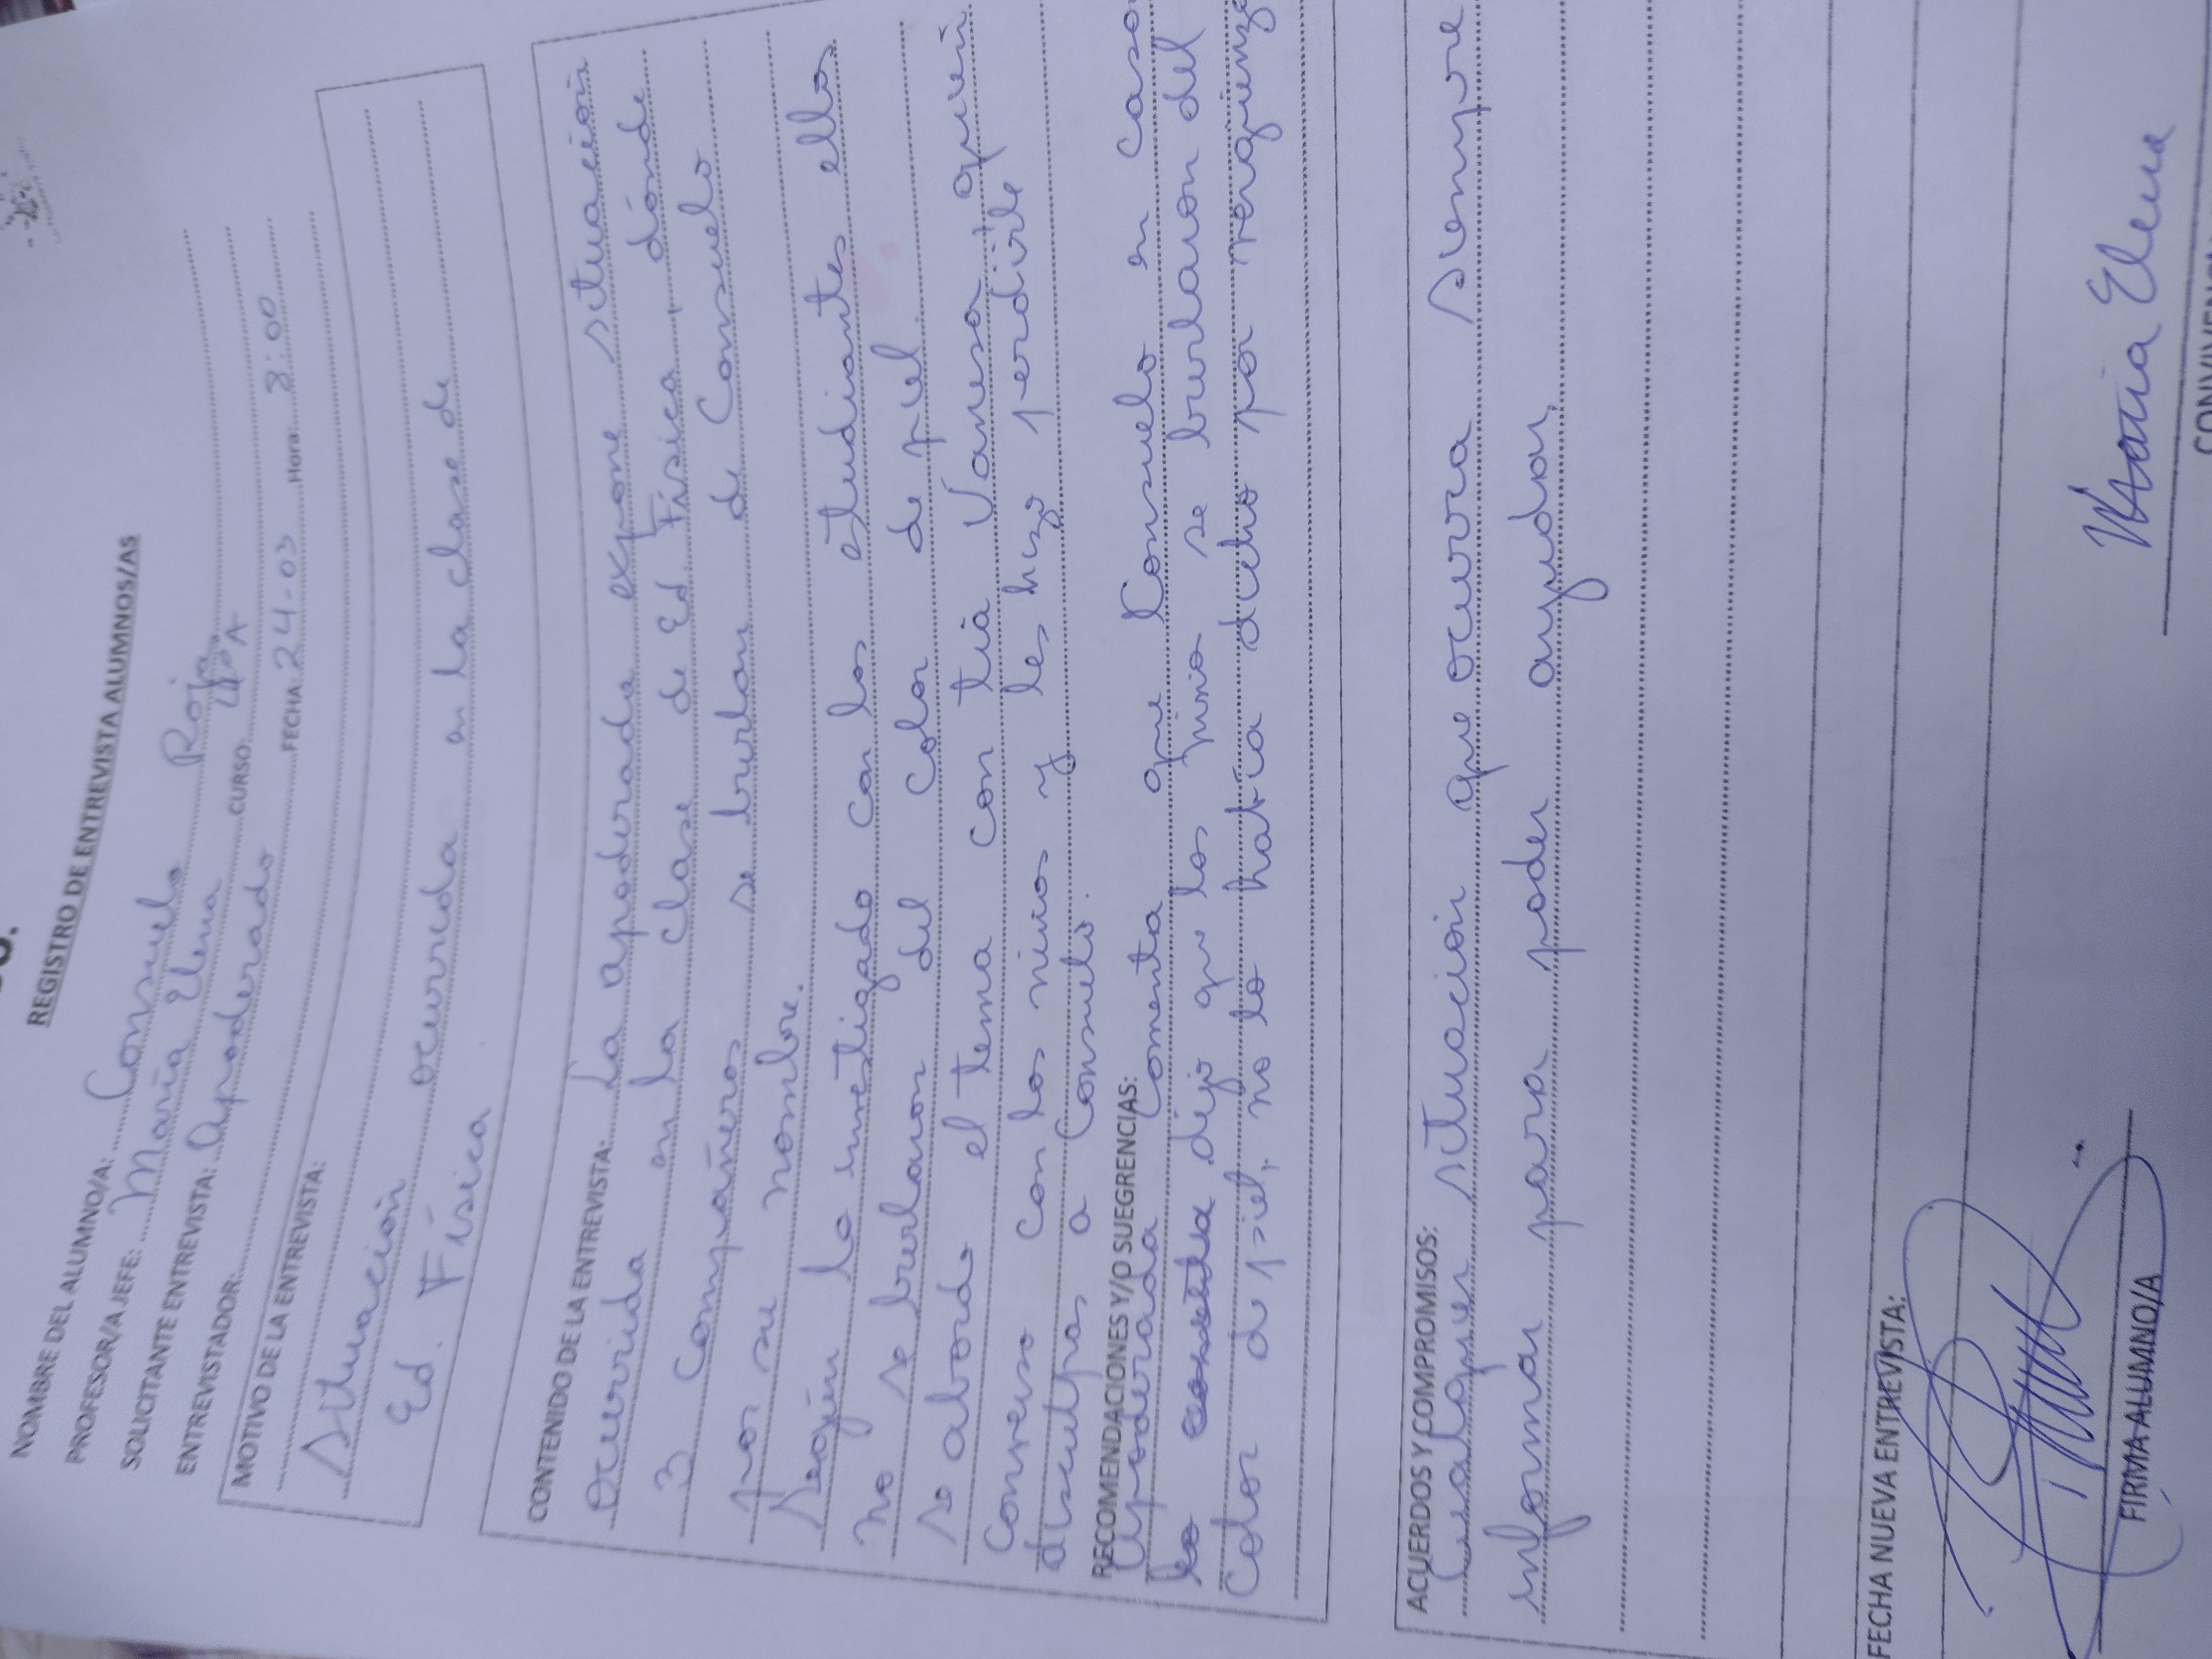 REGISTRO DE ENTREVISTA ALUMNOS/AS
NOMBRE DEL ALUMNO/A: Consuelo Roja
PROFESOR/A JEFE: María Elena CURSO: 4ºA
SOLICITANTE ENTREVISTA: Apoderado
ENTREVISTADOR: FECHA: 24-03 Hora: 8:00
MOTIVO DE LA ENTREVISTA:
Situación ocurrida en la clase de
Ed. Física
CONTENIDO DE LA ENTREVISTA: La apoderada expone situación
ocurrida en la clase de Ed. Física, dónde
3 compañeros se burlan de Consuelo
por su nombre.
Según lo investigado con los estudiantes ellos
no se burlaron del color de piel.
se abordo el tema con tía Vanesa, quien
converso con los niños y les hizo pedirle
disculpas a Consuelo.
RECOMENDACIONES Y/O SUEGRENCIAS: Comenta que Consuelo en casa
Apoderada
lo dijo que los niños se burlaron del
Color de piel, no lo había dicho por vergüenza
ACUERDOS Y COMPROMISOS:
Cualquier situación que ocurra siempre
informar para poder ayudar.
FECHA NUEVA ENTREVISTA:
FIRMA ALUMNO/A
María Elena